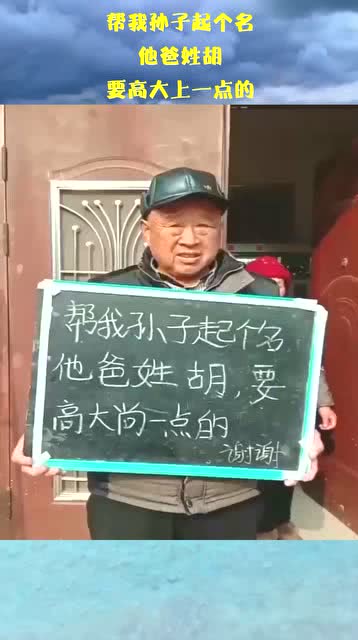 帮我孙子起个名
他爸姓胡
要高大上一点的
帮我孙子起个名
他爸姓胡,要
高大尚一点的
谢谢